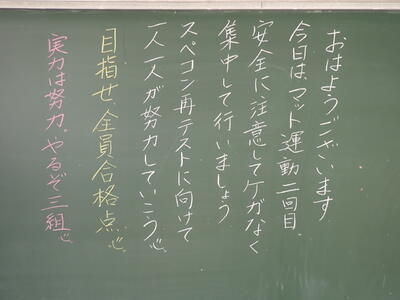 おはようございます
今日は、マット運動二回目、
安全に注意してケガなく
集中して行いましょう
スペコン再テストに向けて
一人一人が努力していこう。
目指せ、全員合格点。
実力は努力。やるぞ三組。